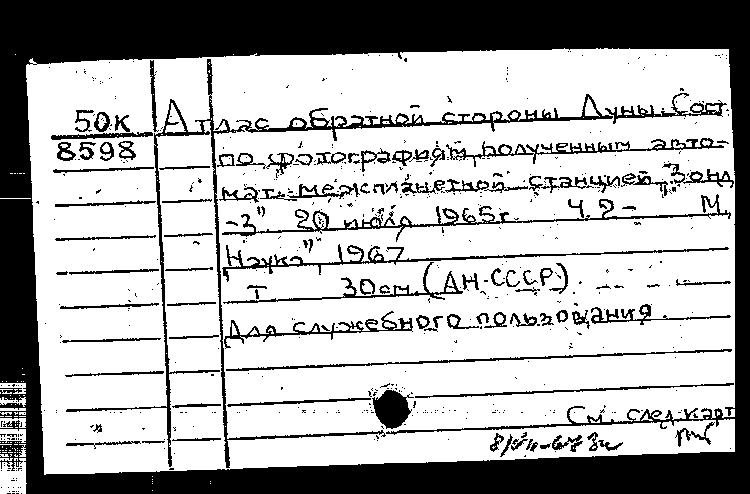 50к Атлас обратной стороны Луны. Сост.
8598 по фотографиям, полученным авто-
мат. межпланетной станцией „Зонд
-3" 20 июля 1965г. Ч. 2- М.,
„Наука", 1967
Т 30см. (АН СССР)
Для служебного пользования.
См. след. карт